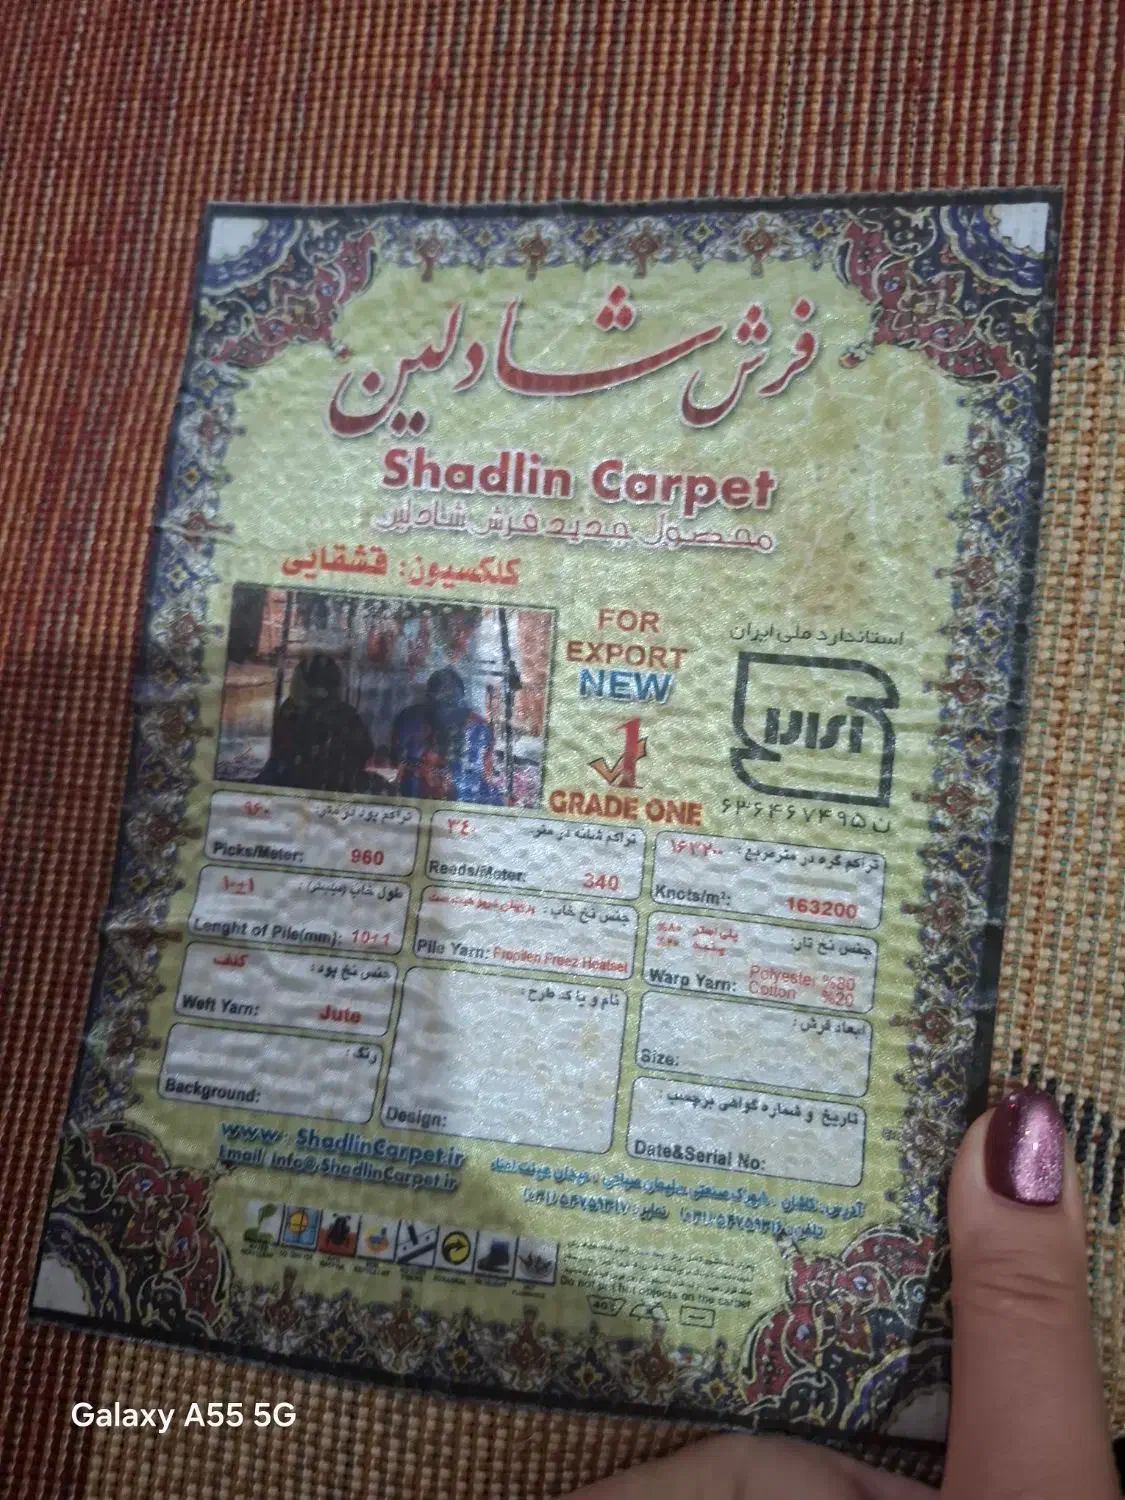 فرش شادلین
Shadlin Carpet
محصول جدید فرش شادلین
کلکسیون: قشقایی
FOR
EXPORT
NEW
1
GRADE ONE
استاندارد ملی ایران
۶۳۶۴۶۷۴۹۵ ن
تراکم پود در متر: ۹۶۰
Picks/Meter: 960
تراکم شانه در متر: ۳٤۰
Reeds/Meter: 340
تراکم گره در مترمربع: ۱۶۳۲۰۰
Knots/m²: 163200
طول خاب (میلیمتر): ۱۰±۱
Lenght of Pile(mm): 10±1
جنس نخ خاب:
Pile Yarn: Propilen Freez Heatset
جنس نخ تار: پلی استر %۸۰
پنبه %۲۰
Warp Yarn: Polyester %80
Cotton %20
جنس نخ پود: کنف
Weft Yarn: Jute
نام و یا کد طرح:
Design:
ابعاد فرش:
Size:
رنگ:
Background:
تاریخ و شماره گواهی برچسب:
Date&Serial No:
www. ShadlinCarpet.ir
Email: info@ShadlinCarpet.ir
آدرس: کاشان
Do not put hot objects on the carpet
40°
Galaxy A55 5G